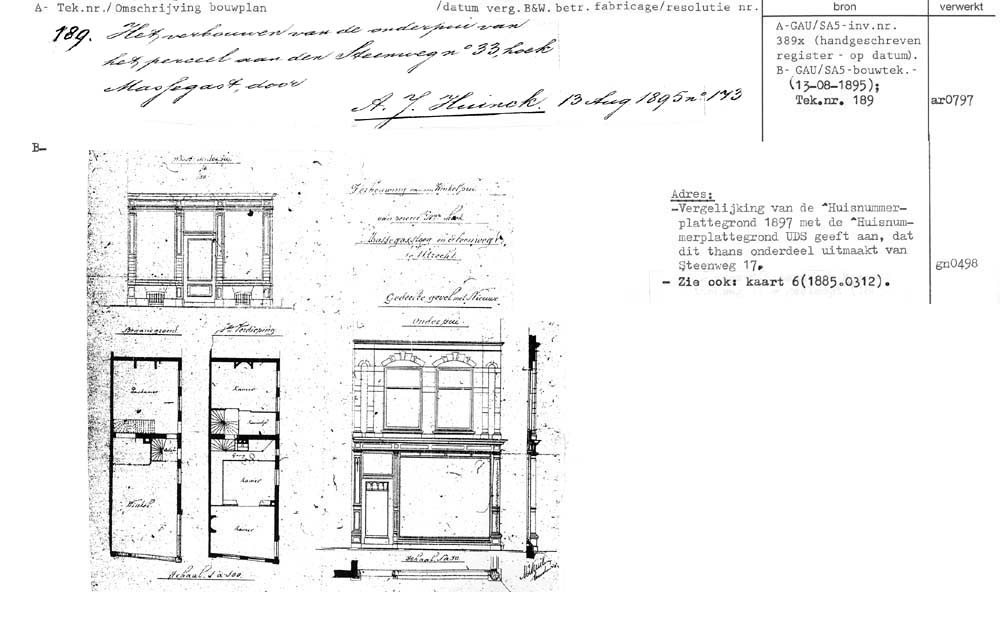 A- Tek.nr./Omschrijving bouwplan /datum verg.B&W. betr. fabricage/resolutie nr.
bron
verwerkt
189. Het verbouwen van de onderpui van
het perceel aan den Steenweg no 33, hoek
Massegast, door
A. J. Huinck. 13 Aug 1895 no 143
A-GAU/SA5-inv.nr.
389x (handgeschreven
register - op datum).
B- GAU/SA5-bouwtek.-
(13-08-1895);
Tek.nr. 189
ar0797
B-
Verbouwing van een Winkelpui
Utrecht
Gedeelte gevel met Nieuwe
Onderpui
1e Verdieping
Kamer
Kamer
Kamer
Winkel
Schaal 1 à 100
Schaal 1 à 50
Adres:
-Vergelijking van de ^Huisnummer-
plattegrond 1897 met de ^Huisnum-
merplattegrond UDS geeft aan, dat
dit thans onderdeel uitmaakt van
Steenweg 17.
gn0498
- Zie ook: kaart 6(1885.0312).